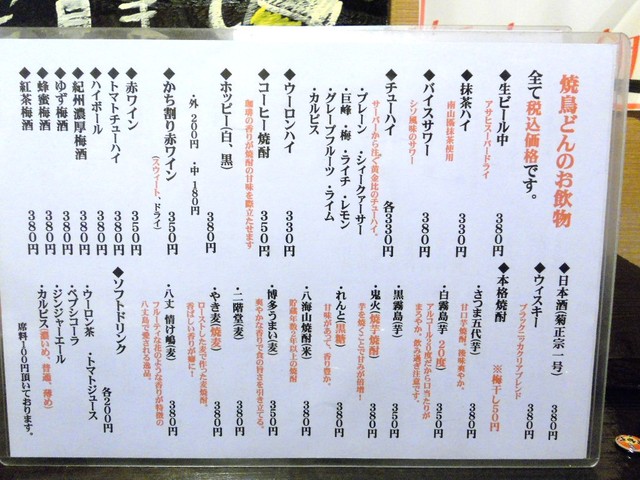 焼鳥どんのお飲物
全て税込価格です。
◆生ビール中 380円
アサヒスーパードライ
◆抹茶ハイ 330円
南山園抹茶使用
◆バイスサワー 380円
シソ風味のサワー
◆チューハイ 各330円
サーバーから注ぐ黄金比のチューハイ。
・プレーン ・シィークァーサー
・巨峰 ・梅 ・ライチ ・レモン
・グレープフルーツ ・ライム
・カルピス
◆ウーロンハイ 330円
◆コーヒー焼酎 350円
珈琲の香りが焼酎の甘味を際立たせます
◆ホッピー(白、黒) 380円
・外 200円 ・中 180円
◆かち割り赤ワイン 350円
(スウィート、ドライ)
◆赤ワイン 350円
◆トマトチューハイ 380円
◆ハイボール 380円
◆紀州濃厚梅酒 380円
◆ゆず梅酒 380円
◆蜂蜜梅酒 380円
◆紅茶梅酒 380円
◆日本酒(菊正宗一号) 380円
◆ウィスキー 380円
ブラックニッカクリアブレンド
◆本格焼酎 ※梅干し50円
・さつま五代(芋) 380円
甘口芋焼酎。後味爽やか。
・白霧島(芋 20度) 350円
アルコール20度だから口当たりが
まろやか。飲み過ぎ注意です。
・黒霧島(芋) 350円
・鬼火(焼芋焼酎) 380円
芋を焼くことで甘みが倍増!
・れんと(黒糖) 380円
甘味があって、香り豊か。
・八海山焼酎(米) 380円
貯蔵年数2年以上の焼酎
・博多うまい(麦) 350円
爽やかな香りで食の旨さを引き立てる。
・二階堂(麦) 380円
・やき麦(焼麦) 380円
ローストした麦で作った麦焼酎。
香ばしい香りが癖に!
・八丈 情け嶋(麦) 380円
フルーティな麦のような香りが特徴の
八丈島で愛される逸品。
◆ソフトドリンク 各200円
・ウーロン茶 ・トマトジュース
・ペプシコーラ
・ジンジャーエール
・カルピス(濃いめ、普通、薄め)
席料100円頂いております。